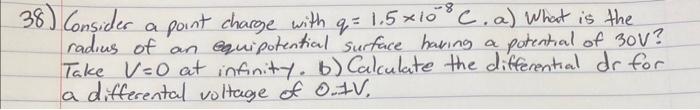 38) Consider a point charge with q = 1.5 × 10⁻⁸ C. a) What is the
radius of an equipotential surface having a potential of 30V?
Take V=0 at infinity. b) Calculate the differential dr for
a differental voltage of 0.1V.